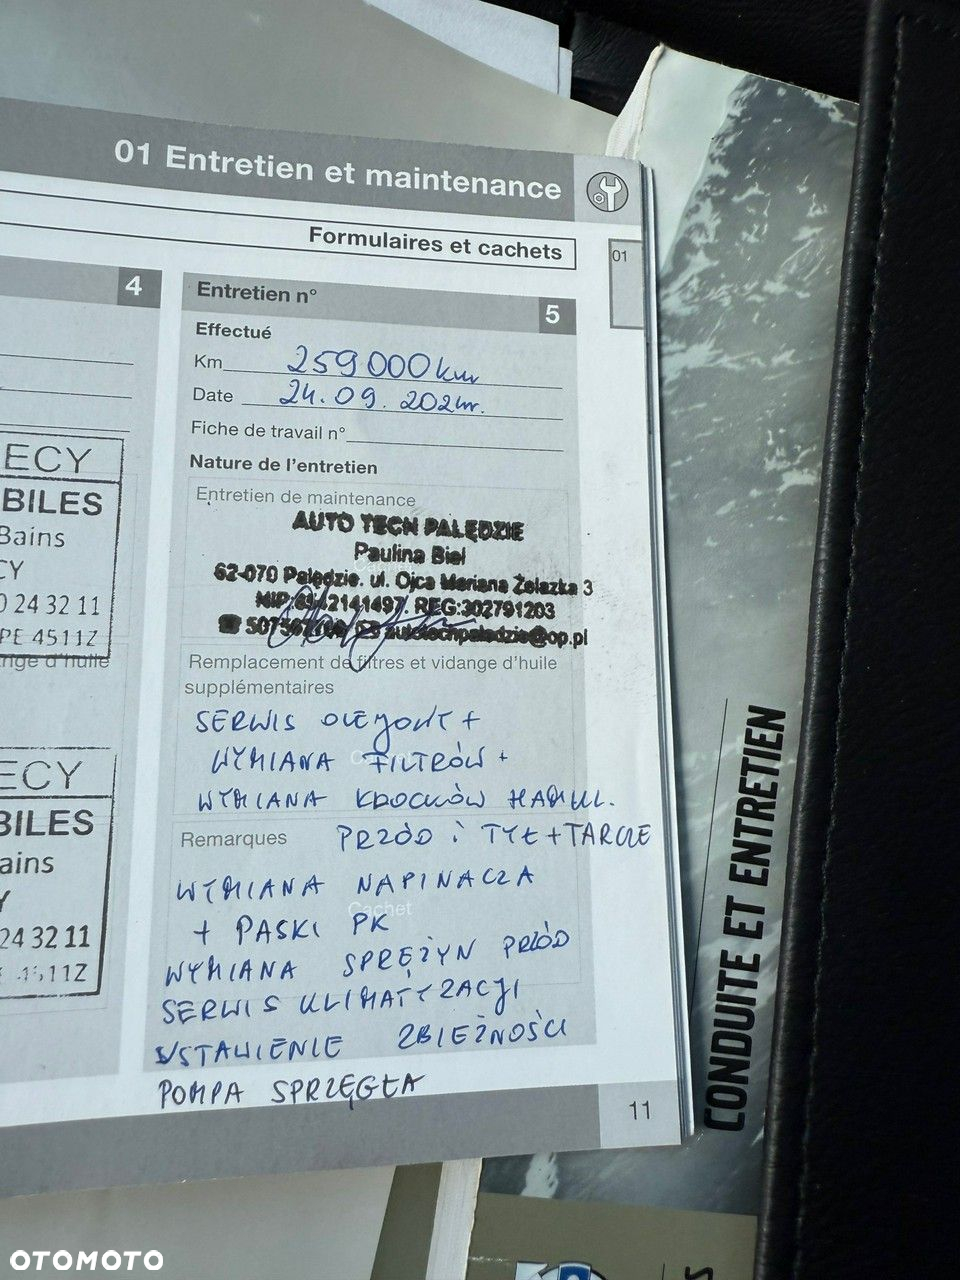 01 Entretien et maintenance
Formulaires et cachets
01
4
ECY
BILES
Bains
CY
0 24 32 11
PE 4511Z
nge d'huile
ECY
BILES
ains
Y
24 32 11
11Z
Entretien n°
5
Effectué
Km 259000km
Date 24.09.
Fiche de travail n°
Nature de l'entretien
Entretien de maintenance
AUTO TECH PALĘDZIE
Paulina Biel
Cachet
62-070 Palędzie. ul. Ojca Mariana Żelazka 3
NIP: REG:302791203
autotechpaledzie@op.pl
Remplacement de filtres et vidange d'huile
supplémentaires
SERWIS OLEJOWY +
WYMIANA FILTRÓW +
WYMIANA KLOCKÓW HAMUL.
Remarques PRZÓD i TYŁ + TARCZE
WYMIANA NAPINACZA
Cachet
+ PASKI PK
WYMIANA SPRĘŻYN PRZÓD
SERWIS KLIMATYZACJI
USTAWIENIE ZBIEŻNOŚCI
POMPA SPRZĘGŁA
11
CONDUITE ET ENTRETIEN
OTOMOTO